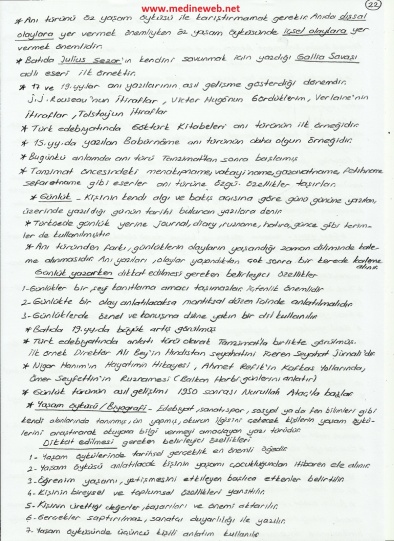 www.medineweb.net
22
* Anı türünü öz yaşam öyküsü ile karıştırmamak gerekir. Anıda dışsal
olaylara yer vermek önemliyken öz yaşam öyküsünde içsel olaylara yer
vermek önemlidir.
* Batıda Julius Sezar'ın kendini savunmak için yazdığı Gallia Savaşı
adlı eseri ilk örnektir.
* 17 ve 19.yylar anı yazılarının asıl gelişme gösterdiği dönemdir.
J.J. Rousseau'nun İtiraflar, Victor Hugo'nun Gördüklerim, Verlaine'nin
İtiraflar, Tolstoy'un İtiraflar
* Türk edebiyatında Göktürk Kitabeleri anı türünün ilk örneğidir.
* 15.yy.da yazılan Babürname anı türünün daha olgun örneğidir.
* Bugünkü anlamda anı türü Tanzimattan sonra başlamış
* Tanzimat öncesindeki menakıpname, vakayiname, gazavatname, fetihname
sefaretname gibi eserler anı türüne özgü özellikler taşırlar.
* Günlük - Kişinin kendi algı ve bakış açısına göre günü gününe yazılan,
üzerinde yazıldığı günün tarihi bulunan yazılara denir
* Türkçede günlük yerine journal, diary, ruzname, hatıra, günce gibi terim-
ler de kullanılmıştır.
* Anı türünden farkı, günlüklerin olayların yaşandığı zaman diliminde kale-
me alınmasıdır. Anı yazıları, olaylar yaşandıktan çok sonra bir kerede kaleme
alınır.
Günlük yazarken dikkat edilmesi gereken belirleyici özellikler
1- Günlükler bir şey kanıtlama amacı taşımazlar. İçtenlik önemlidir
2- Günlükte bir olay anlatılacaksa mantıksal düzen içinde anlatılmalıdır.
3- Günlüklerde öznel ve konuşma diline yakın bir dil kullanılır
* Batıda 19.yy.da büyük artış görülmüş
* Türk edebiyatında anlatı türü olarak Tanzimat'la birlikte görülmüş.
İlk örnek Direktör Ali Bey'in Hindistan seyahatini içeren Seyahat Jurnali'dir.
* Nigar Hanım'ın Hayatımın Hikayesi, Ahmet Refik'in Kafkas Yollarında,
Ömer Seyfettin'in Ruznamesi (Balkan Harbi günlerini anlatır)
* Günlük türünün asıl gelişimi 1950 sonrası Nurullah Ataç'la başlar
* Yaşam öyküsü / Biyografi - Edebiyat, sanat, spor, sosyal ya da fen bilimleri gibi
kendi alanlarında tanınmış, ün yapmış, okurun ilgisini çekecek kişilerin yaşam öykü-
lerini araştırarak okuyana bilgi vermeyi amaçlayan yazı türüdür.
Dikkat edilmesi gereken belirleyici özellikleri
1- Yaşam öykülerinde tarihsel gerçeklik en önemli öğedir.
2- Yaşam öyküsü anlatılacak kişinin yaşamı çocukluğundan itibaren ele alınır.
3- Öğrenim yaşamı, yetişmesini etkileyen başlıca etkenler belirtilir.
4- Kişinin bireysel ve toplumsal özellikleri yansıtılır.
5- Kişinin ürettiği değerler, başarıları ve önemi aktarılır.
6- Gerçekler saptırılmaz, sanatçı duyarlılığı ile yazılır.
7- Yaşam öyküsünde üçüncü kişili anlatım kullanılır